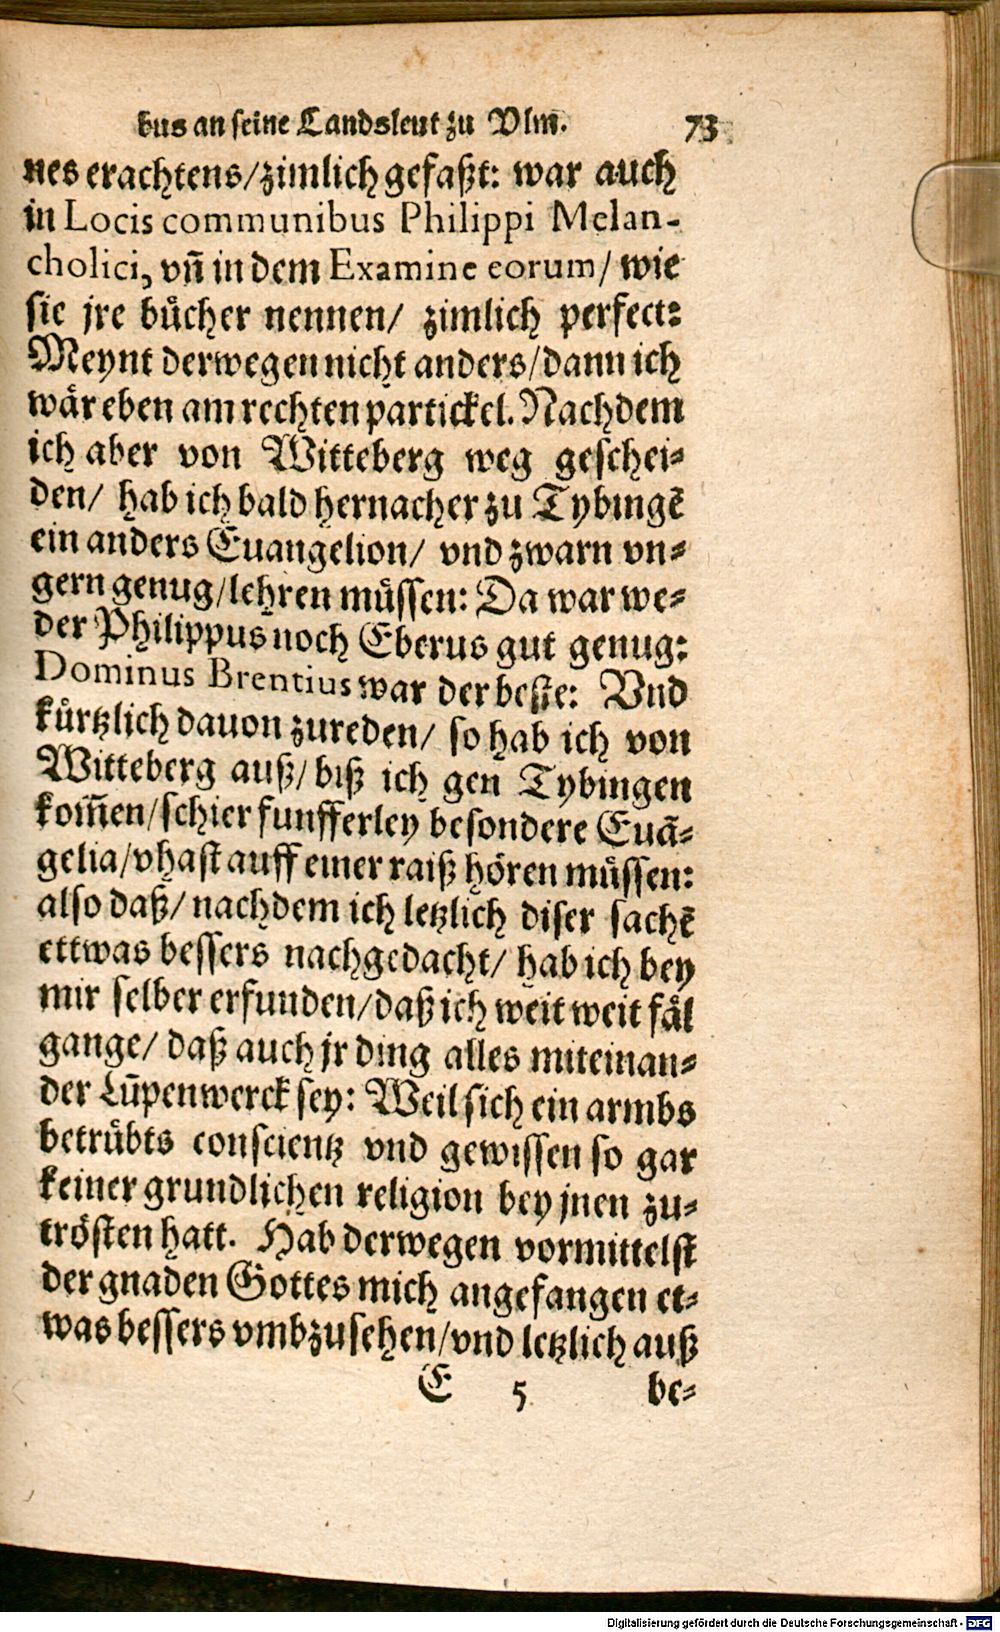 bus an seine Landsleut zu Vlm. 73
nes erachtens/zimlich gefaßt: war auch
in Locis communibus Philippi Melan-
cholici, vñ in dem Examine eorum/ wie
sie jre bücher nennen/ zimlich perfect:
Meynt derwegen nicht anders/dann ich
wär eben am rechten partickel. Nachdem
ich aber von Witteberg weg geschei-
den/ hab ich bald hernacher zu Tybingẽ
ein anders Euangelion/ vnd zwarn vn-
gern genug/lehren müssen: Da war we-
der Philippus noch Eberus gut genug:
Dominus Brentius war der beste: Vnd
kürtzlich dauon zureden/ so hab ich von
Witteberg auß/ biß ich gen Tybingen
kom̃en/schier funfferley besondere Euã-
gelia/vhast auff einer raiß hören müssen:
also daß/ nachdem ich letzlich diser sachẽ
ettwas bessers nachgedacht/ hab ich bey
mir selber erfunden/daß ich weit weit fäl
gange/ daß auch jr ding alles miteinan-
der Lũpenwerck sey: Weil sich ein armbs
betrübts conscientz vnd gewissen so gar
keiner grundlichen religion bey jnen zu-
trösten hatt. Hab derwegen vormittelst
der gnaden Gottes mich angefangen et-
was bessers vmbzusehen/vnd letzlich auß
E 5 be-
Digitalisierung gefördert durch die Deutsche Forschungsgemeinschaft - DFG